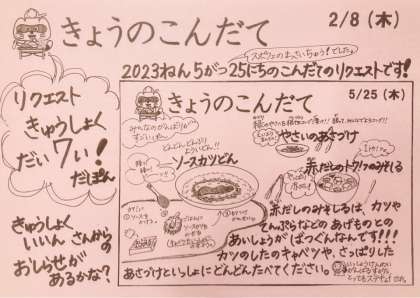 きょうのこんだて
2/8（木）
スポフェのまっさいちゅう！でした。
2023ねん5がつ25にちのこんだてのリクエストです！
リクエスト
きゅうしょく
だい7い！
だぽん
きゅうしょく
いいん さんからの
おしらせが
あるかな？
きょうのこんだて
5/25（木）
みんなのがんばりが
すごいぱー
どんどんどんぶり
ソースカツどん
やさいのあさづけ
赤だしとトウフのみそしる
赤だしのみそしるは、カツや
てんぷらなどの あげものとの
あいしょうが ばつぐんなんです！！！
カツのしたのキャベツや、さっぱりした
あさづけといっしょに どんどんたべてください。